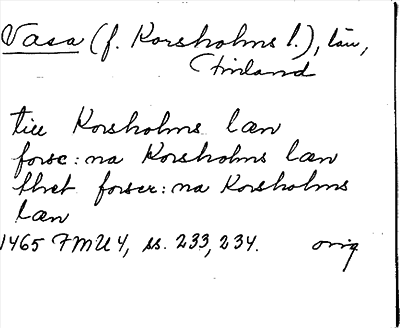 Vasa (f. Korsholms l.), län,
Finland
till Korsholms læn
forsc:na Korsholms læn
thet forscr:na Korsholms
læn
1465 FMU 4, ss. 233, 234. orig